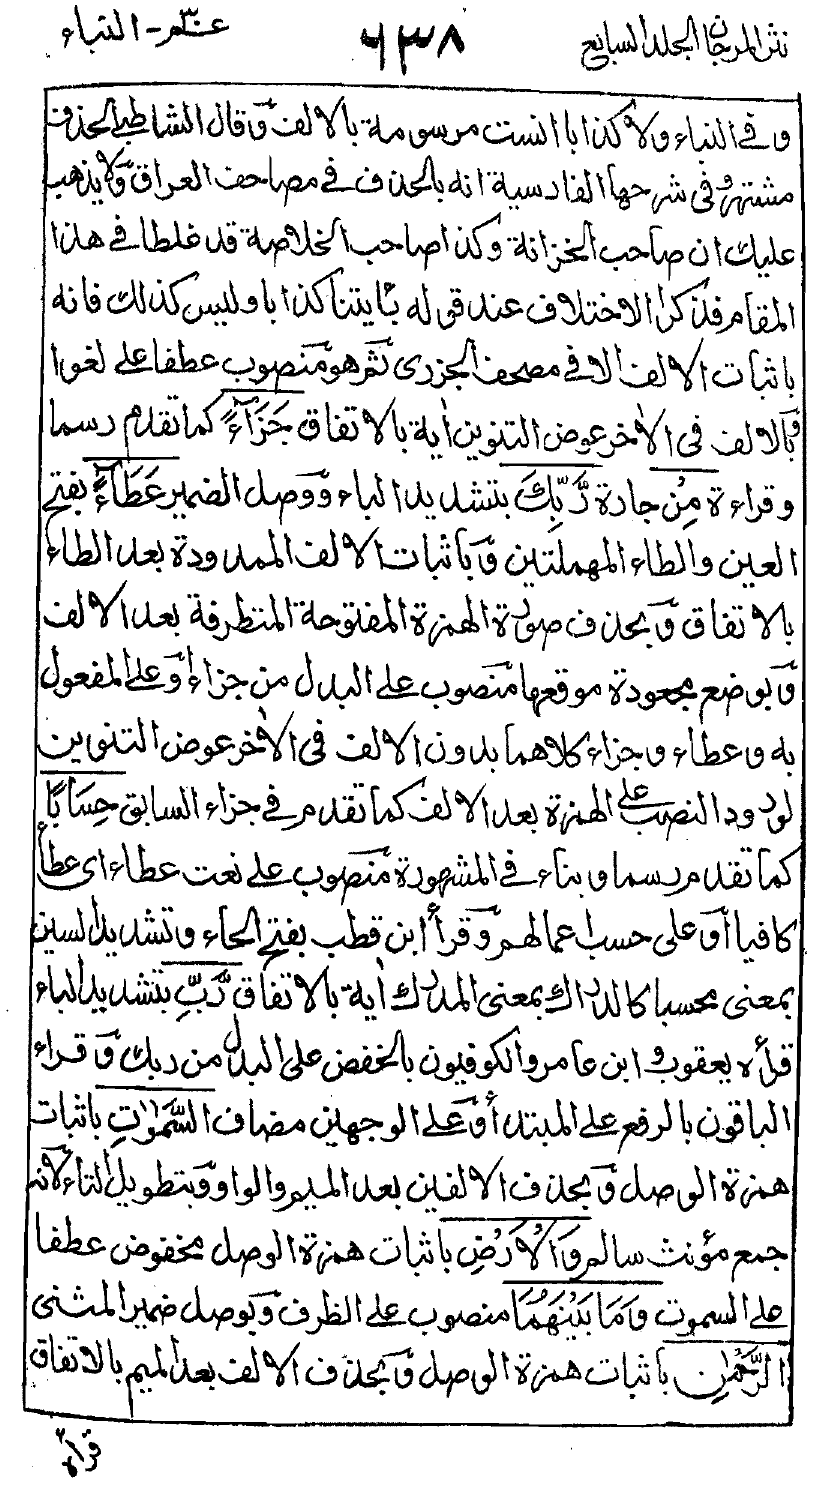 نثر المرجان الجلد السابع ٦٣٨ عمّ ٣٠ - النباء
و في النباء ولا كذابا الست مرسومة بالالف وقال الشاطبي الحذف
مشتهر وفى شرحها الفادسية انه بالحذف في مصاحف العراق ولا يذهب
عليك ان صاحب الخزانة وكذا صاحب الخلاصة قد غلطا في هذا
المقام فذكرا الاختلاف عند قوله بأيتنا كذابا وليس كذلك فانه
باثبات الالف الا في مصحف الجزرى ثم هو منصوب عطفا على لغوا
وبالالف فى الأخر عوض التنوين أية بالاتفاق جَزَآءً كما تقدم رسما
وقراءة مِنْ جارة رَّبِّكَ بتشديد الباء ووصل الضمير عَطَآءً بفتح
العين والطاء المهملتين وباثبات الالف الممدودة بعد الطاء
بالاتفاق وبحذف صورة الهمزة المفتوحة المتطرفة بعد الالف
وبوضع مجعودة موقعها منصوب على البدل من جزاء أو على المفعول
به وعطاء وجزاء كلاهما بدون الالف فى الأخر عوض التنوين
لورود النصب على الهمزة بعد الالف كما تقدم في جزاء السابق حِسَابًا
كما تقدم رسما وبناء في المشهورة منصوب على نعت عطاء اى عطأ
كافيا أو على حسب اعمالهم وقرأ ابن قطب بفتح الحاء وتشديد السين
بمعنى محسبا كالدراك بمعنى المدرك أية بالاتفاق رَّبِّ بتشديد الباء
قرأه يعقوب وابن عامر والكوفيون بالخفض على البدل من ربك وقراء
الباقون بالرفع على المبتدأ وعلى الوجهين مضاف السَّمٰوٰتِ باثبات
همزة الوصل وبحذف الالفين بعد الميم والواو وبتطويل التاء لانه
جمع مؤنث سالم وَالْاَرْضِ باثبات همزة الوصل مخفوض عطفا
على السموت وَمَا بَيْنَهُمَا منصوب على الظرف وبوصل ضمير المثنى
الرَّحْمٰنِ باثبات همزة الوصل وبحذف الالف بعد الميم بالاتفاق
قرأه